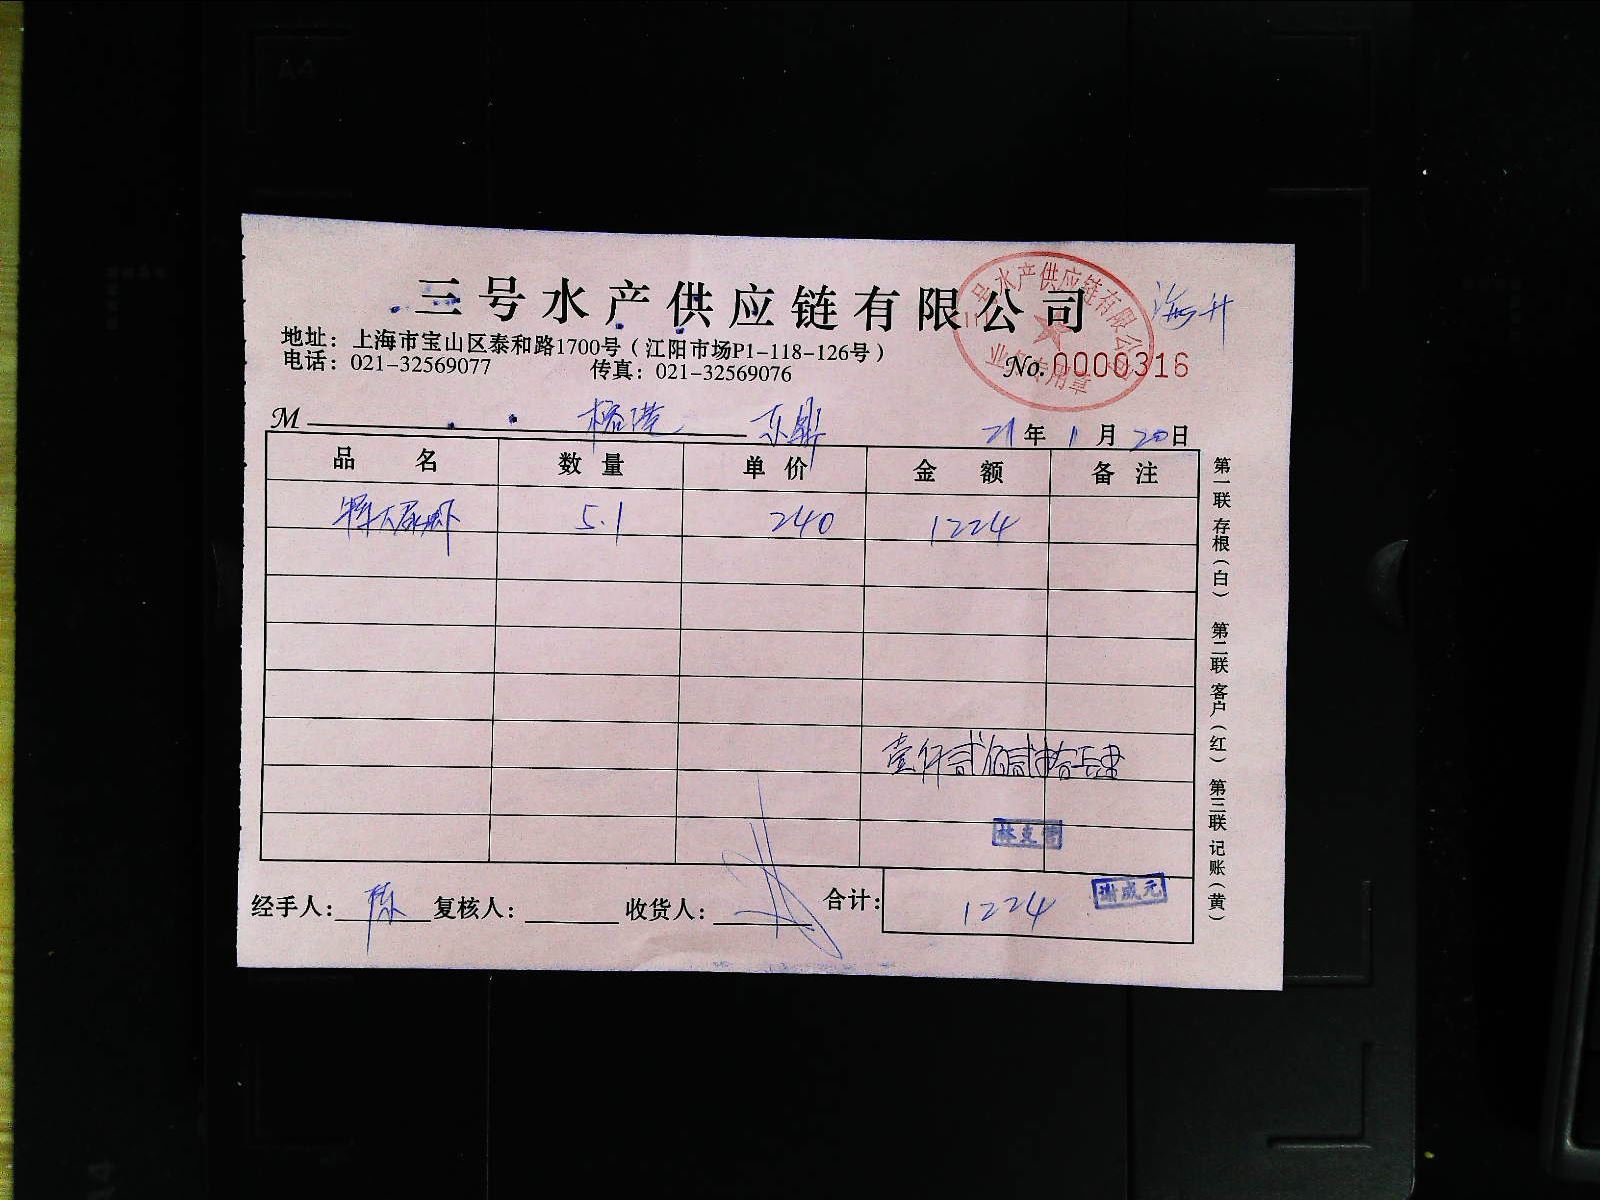 三号水产供应链有限公司
三号水产供应链有限公司
业务专用章
海升
地址：上海市宝山区泰和路1700号（江阳市场P1-118-126号）
电话：021-32569077 传真：021-32569076
No. 0000316
M 榕港 东鼎 21年1月20日
品名 数量 单价 金额 备注
5.1 240 1224
壹仟贰佰贰拾肆
谢成元
经手人：陈 复核人： 收货人： 合计：1224
第一联 存根（白） 第二联 客户（红） 第三联 记账（黄）
A4